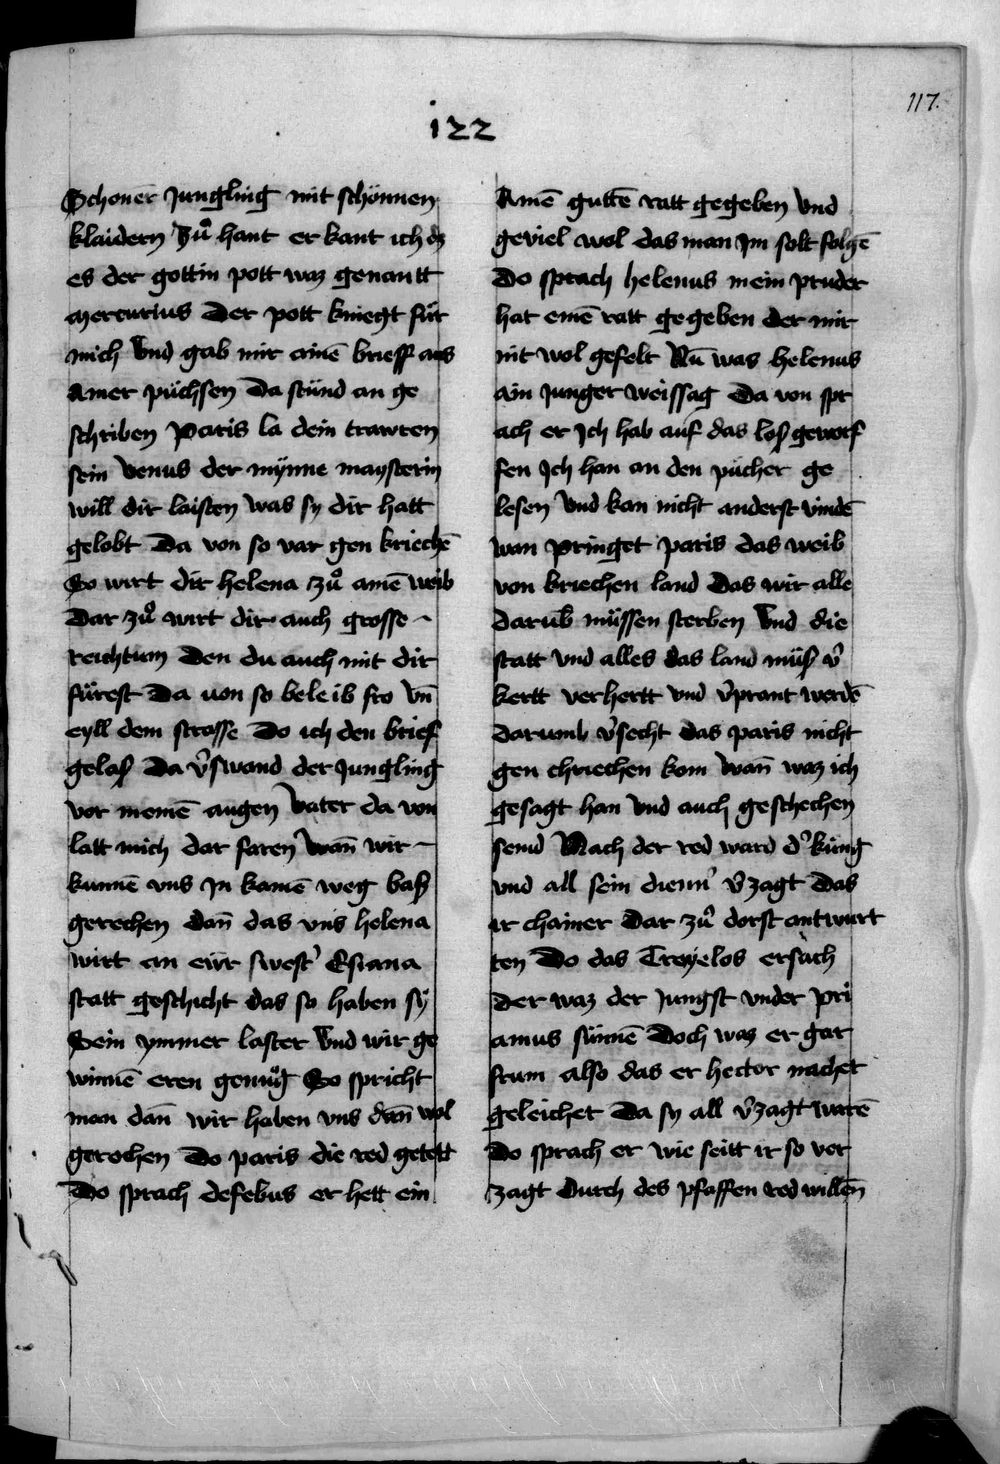 117.
122
Schoner Jungling mit schönnen
klaidern Zuͦ hant er kant ich dz
es der gottin pott waz genantt
Mercurius Der pott kniegt für
mich Vnd gab mir ainē brieff aus
Ainer püchsen Da stünd an ge
schriben Paris la dein trawren
sein Venus der mynne maysterin
will dir laisten was sy dir hatt
gelobt Da von so var gen kriechē
So wirt dir helena zuͦ ainē weib
Dar zuͦ wirt dir auch grosse -
reichtum Den du auch mit dir
fürest Da uon so beleib fro Vn̄
eyll dein strasse Do ich den brief
gelaß Da v̓swand der Jungling
vor meinē augen Vater da von
latt mich dar faren Wan̄ wir -
kunnē vns Jn kainē weg baß
gerechen dan̄ das vns helena
wirt an eür swest̓ Esiana
statt geschicht das so haben sÿ
Sein ymmer laster Vnd wir ge
winnē eren genuͦg So spricht
man dan̄ wir haben vns dan̄ wol
gerochen Do paris die red getett
Do sprach defebus er hett ein
Ainē guttē ratt gegeben Vnd
geviel wol das man Jm solt folgē
Do sprach helenus mein pruder
hat einē ratt gegeben der mir
nit wol gefelt Nū was helenus
ain Junger weissag Da von spr
ach er Jch hab auf das loß geworf
fen Jch han an den pücher ge
lesen Vnd kan nicht anderst vindē
wan pringet paris das weib
von kriechen land Das wir alle
darūb müssen sterben Vnd die
statt vnd alles das land müß v̓
kertt verhertt vnd v̓prant werdē
darumb v̓secht das paris nicht
gen chriechen kom Wan̄ waz ich
gesagt han Vnd auch geschechen
seind Nach der red ward d̓ küng
vnd all sein dienn̓ v̓zagt Das
ir chainer Dar zuͦ dorst antwurt
ten Do das Troyelos ersach
Der waz der Jungst vnder pri
amus sünnē Doch waz er gar
frum also das er hector nachet
geleichet Da sy all v̓zagt warē
Do sprach er wie seitt ir so ver
zagt Durch des pfaffen red willen